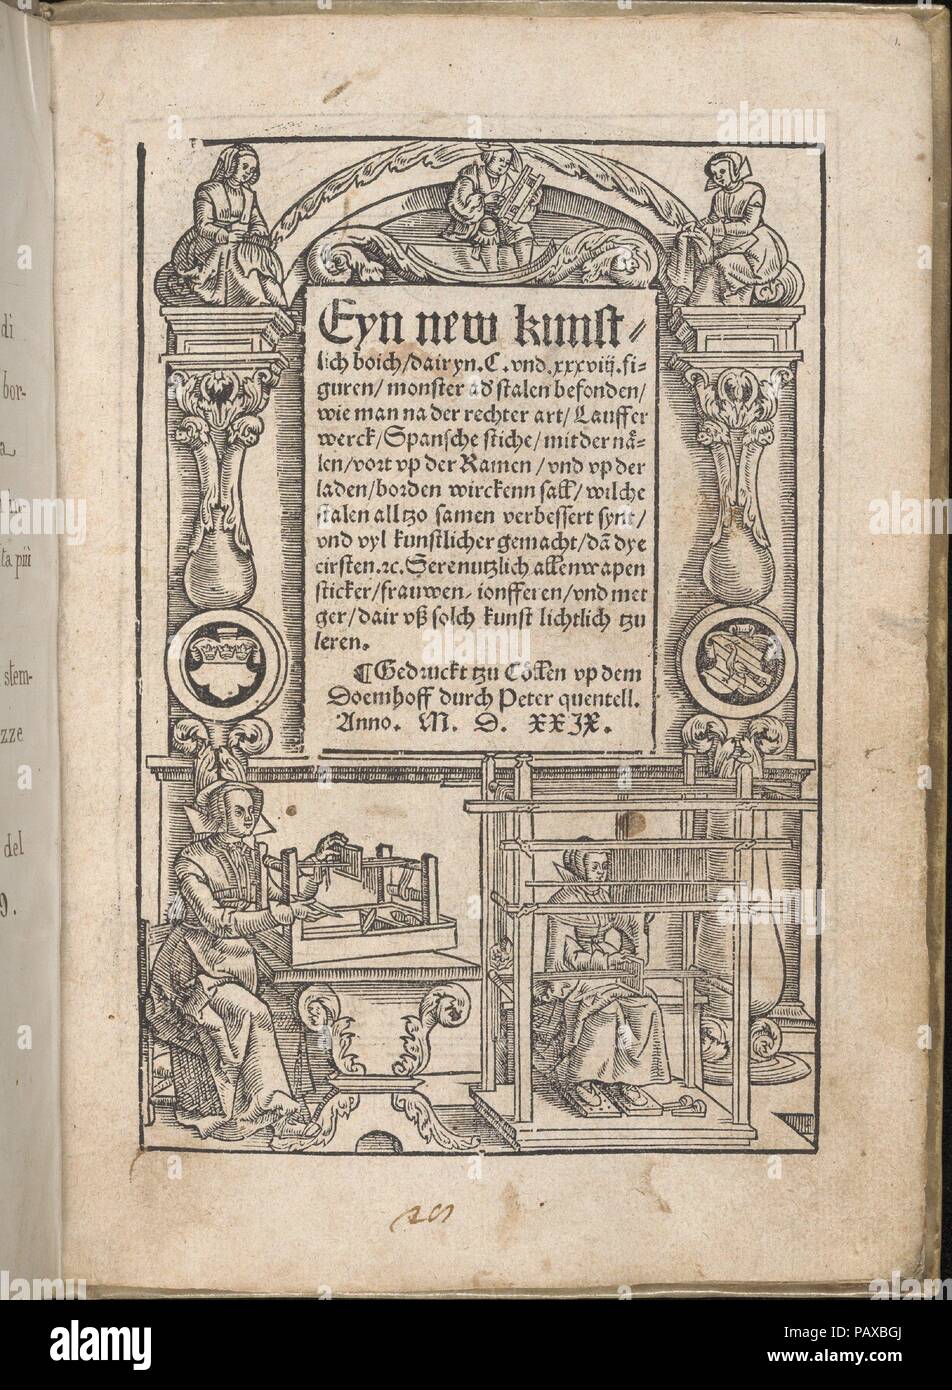 Eyn new kunst⸗
lich boich/dair yn.C.vnd.xxxviij.fi-
guren/monster ad' stalen befonden/
wie man na der rechter art/Lauffer
werck/Spansche stiche/mit der nå-
len/vort vp der Ramen/vnd vp der
laden/borden wirckenn sall/wilche
stalen all tzo samen verbessert synt/
vnd vyl kunstlicher gemacht/dā dye
eirsten.ꝛc.Sere nutzlich allen wapen
sticker/frauwen, ionfferen/vnd met
ger/dair vß solch kunst lichtlich tzu
leren.
¶Gedruckt tzu Cöllen vp dem
Doemhoff durch Peter quentell.
Anno. M. D. XXIX.
di
bor-
a
ta più
stem-
zze
del
9.
a
alamy
alamy
Image ID: PAXBGJ
www.alamy.com